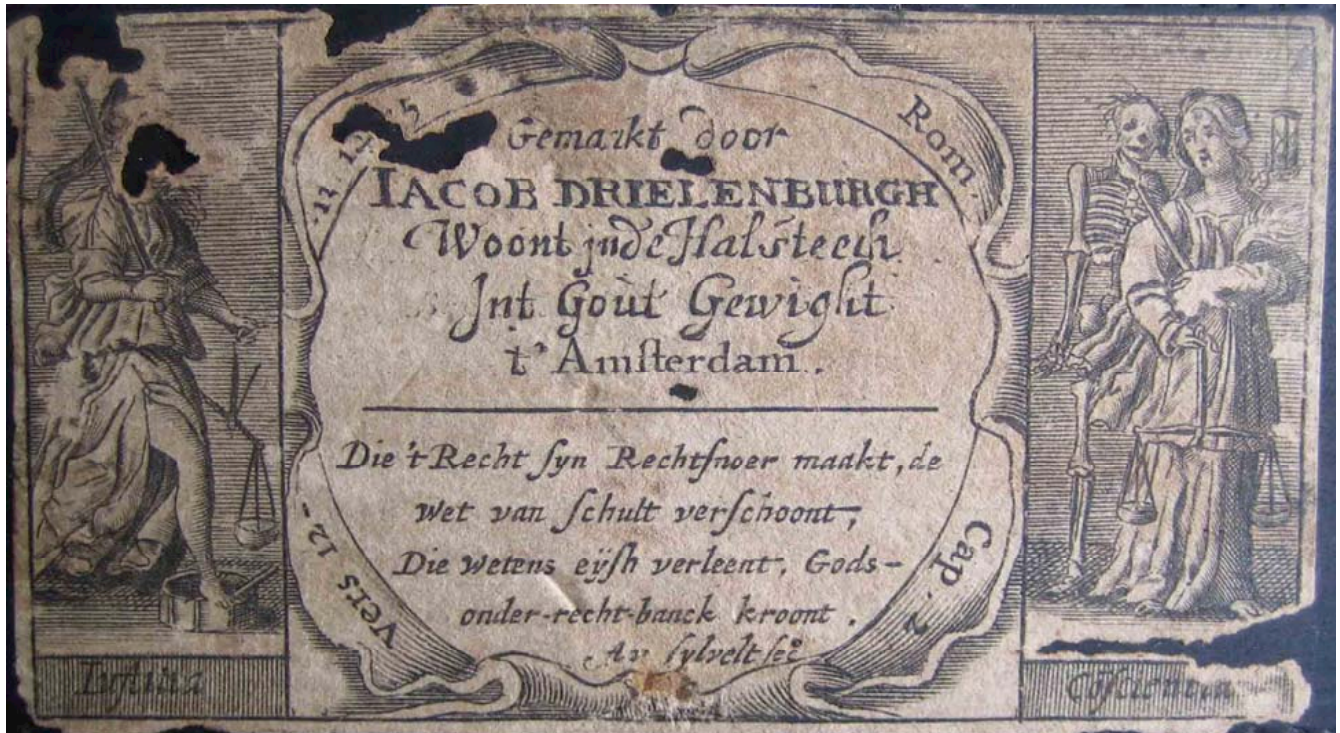 Rom.
Cap. 2
Vers 12-
Gemaikt door
IACOB DRIELENBURGH
Woont jnde Halsteech
Jnt Gout Gewight
t' Amsterdam.
Die 't Recht syn Rechtsnoer maakt, de
wet van schult verschoont,
Die wetens eÿsh verleent, Gods-
onder-recht-banck kroont.
AV sylvelt fec
Iustitia